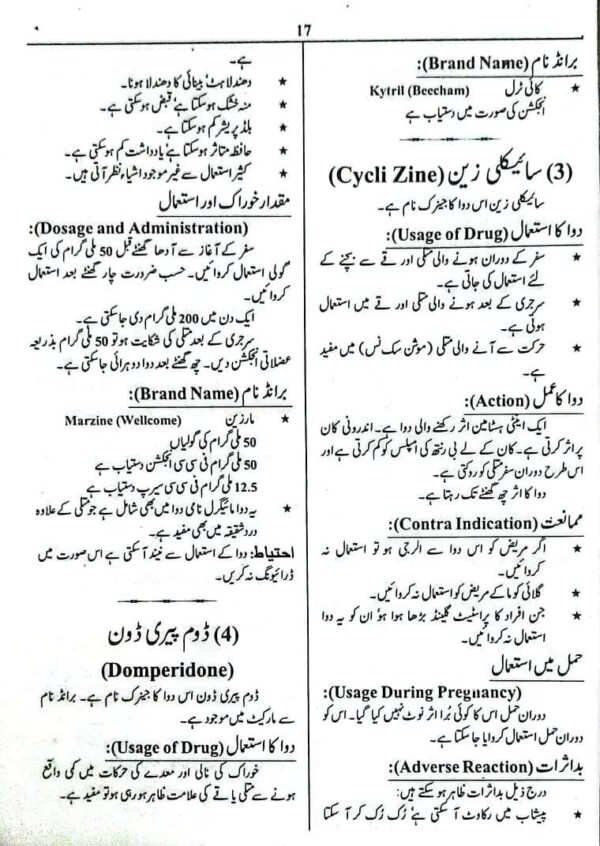 17
برانڈ نام (Brand Name):
★ کائی ٹرل Kytril (Beecham)
انجکشن کی صورت میں دستیاب ہے
(3) سائیکلی زین (Cycli Zine)
سائیکلی زین اس دوا کا جینرک نام ہے۔
دوا کا استعمال (Usage of Drug):
★ سفر کے دوران ہونے والی متلی اور قے سے بچنے کے
لئے استعمال کی جاتی ہے۔
★ سرجری کے بعد ہونے والی متلی اور قے میں استعمال
ہوتی ہے۔
★ حرکت سے آنے والی متلی (موشن سک نس) میں مفید
ہے۔
دوا کا عمل (Action):
ایک اینٹی ہسٹامین اثر رکھنے والی دوا ہے۔ اندرونی کان
پر اثر کرتی ہے۔ کان کے لے بی رنتھ کی امپلس کو کم کرتی ہے اور
اس طرح دوران سفر متلی کو روکتی ہے۔
دوا کا اثر چھ گھنٹے تک رہتا ہے۔
ممانعت (Contra Indication):
★ اگر مریض کو اس دوا سے الرجی ہو تو استعمال نہ
کروائیں۔
★ گلائی کوما کے مریض کو استعمال نہ کروائیں۔
★ جن افراد کا پراسٹیٹ گلینڈ بڑھا ہوا ہو ان کو یہ دوا
استعمال نہ کروائیں۔
حمل میں استعمال
(Usage During Pregnancy):
دوران حمل اس کا کوئی بُرا اثر نوٹ نہیں کیا گیا۔ اس کو
دوران حمل استعمال کروایا جا سکتا ہے۔
بد اثرات (Adverse Reaction):
درج ذیل بد اثرات ظاہر ہو سکتے ہیں:
★ پیشاب میں رکاوٹ آ سکتی ہے، رُک رُک کر آ سکتا
ہے۔
★ دھندلاہٹ، بینائی کا دھندلا ہونا۔
★ منہ خشک ہو سکتا ہے، قبض ہو سکتی ہے۔
★ بلڈ پریشر کم ہو سکتا ہے۔
★ حافظہ متاثر ہو سکتا ہے، یادداشت کم ہو سکتی ہے۔
★ کثیر استعمال سے غیر موجود اشیاء نظر آتی ہیں۔
مقدار خوراک اور استعمال
(Dosage and Administration):
سفر کے آغاز سے آدھا گھنٹے قبل 50 ملی گرام کی ایک
گولی استعمال کروائیں۔ حسب ضرورت چار گھنٹے بعد استعمال
کروائیں۔
ایک دن میں 200 ملی گرام دی جا سکتی ہے۔
سرجری کے بعد متلی کی شکایت ہو تو 50 ملی گرام بذریعہ
عضلاتی انجکشن دیں۔ چھ گھنٹے بعد دوا دوہرائی جا سکتی ہے۔
برانڈ نام (Brand Name):
★ مارزین Marzine (Wellcome)
50 ملی گرام کی گولیاں
50 ملی گرام فی سی سی انجکشن دستیاب ہے
12.5 ملی گرام فی سی سی سیرپ دستیاب ہے
★ یہ دوا مائیگرل نامی دوا میں بھی شامل ہے جو متلی کے علاوہ
درد شقیقہ میں بھی مفید ہے۔
احتیاط: دوا کے استعمال سے نیند آ سکتی ہے اس صورت میں
ڈرائیونگ نہ کریں۔
(4) ڈوم پیری ڈون
(Domperidone)
ڈوم پیری ڈون اس دوا کا جینرک نام ہے۔ برانڈ نام
سے مارکیٹ میں موجود ہے۔
دوا کا استعمال (Usage of Drug):
خوراک کی نالی اور معدے کی حرکات میں کمی واقع
ہونے سے متلی یا قے کی علامت ظاہر ہو رہی ہو تو مفید ہے۔